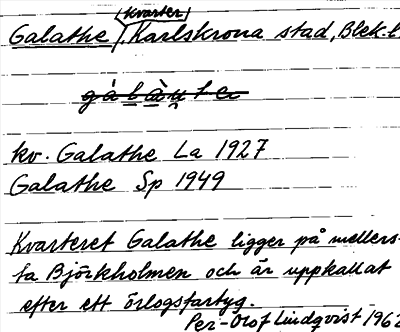 kvarter
Galathe, Karlskrona stad, Blek. l
kv. Galathe La 1927
Galathe Sp 1949
Kvarteret Galathe ligger på mellers-
ta Björkholmen och är uppkallat
efter ett örlogsfartyg.
Per-Olof Lindqvist 1962